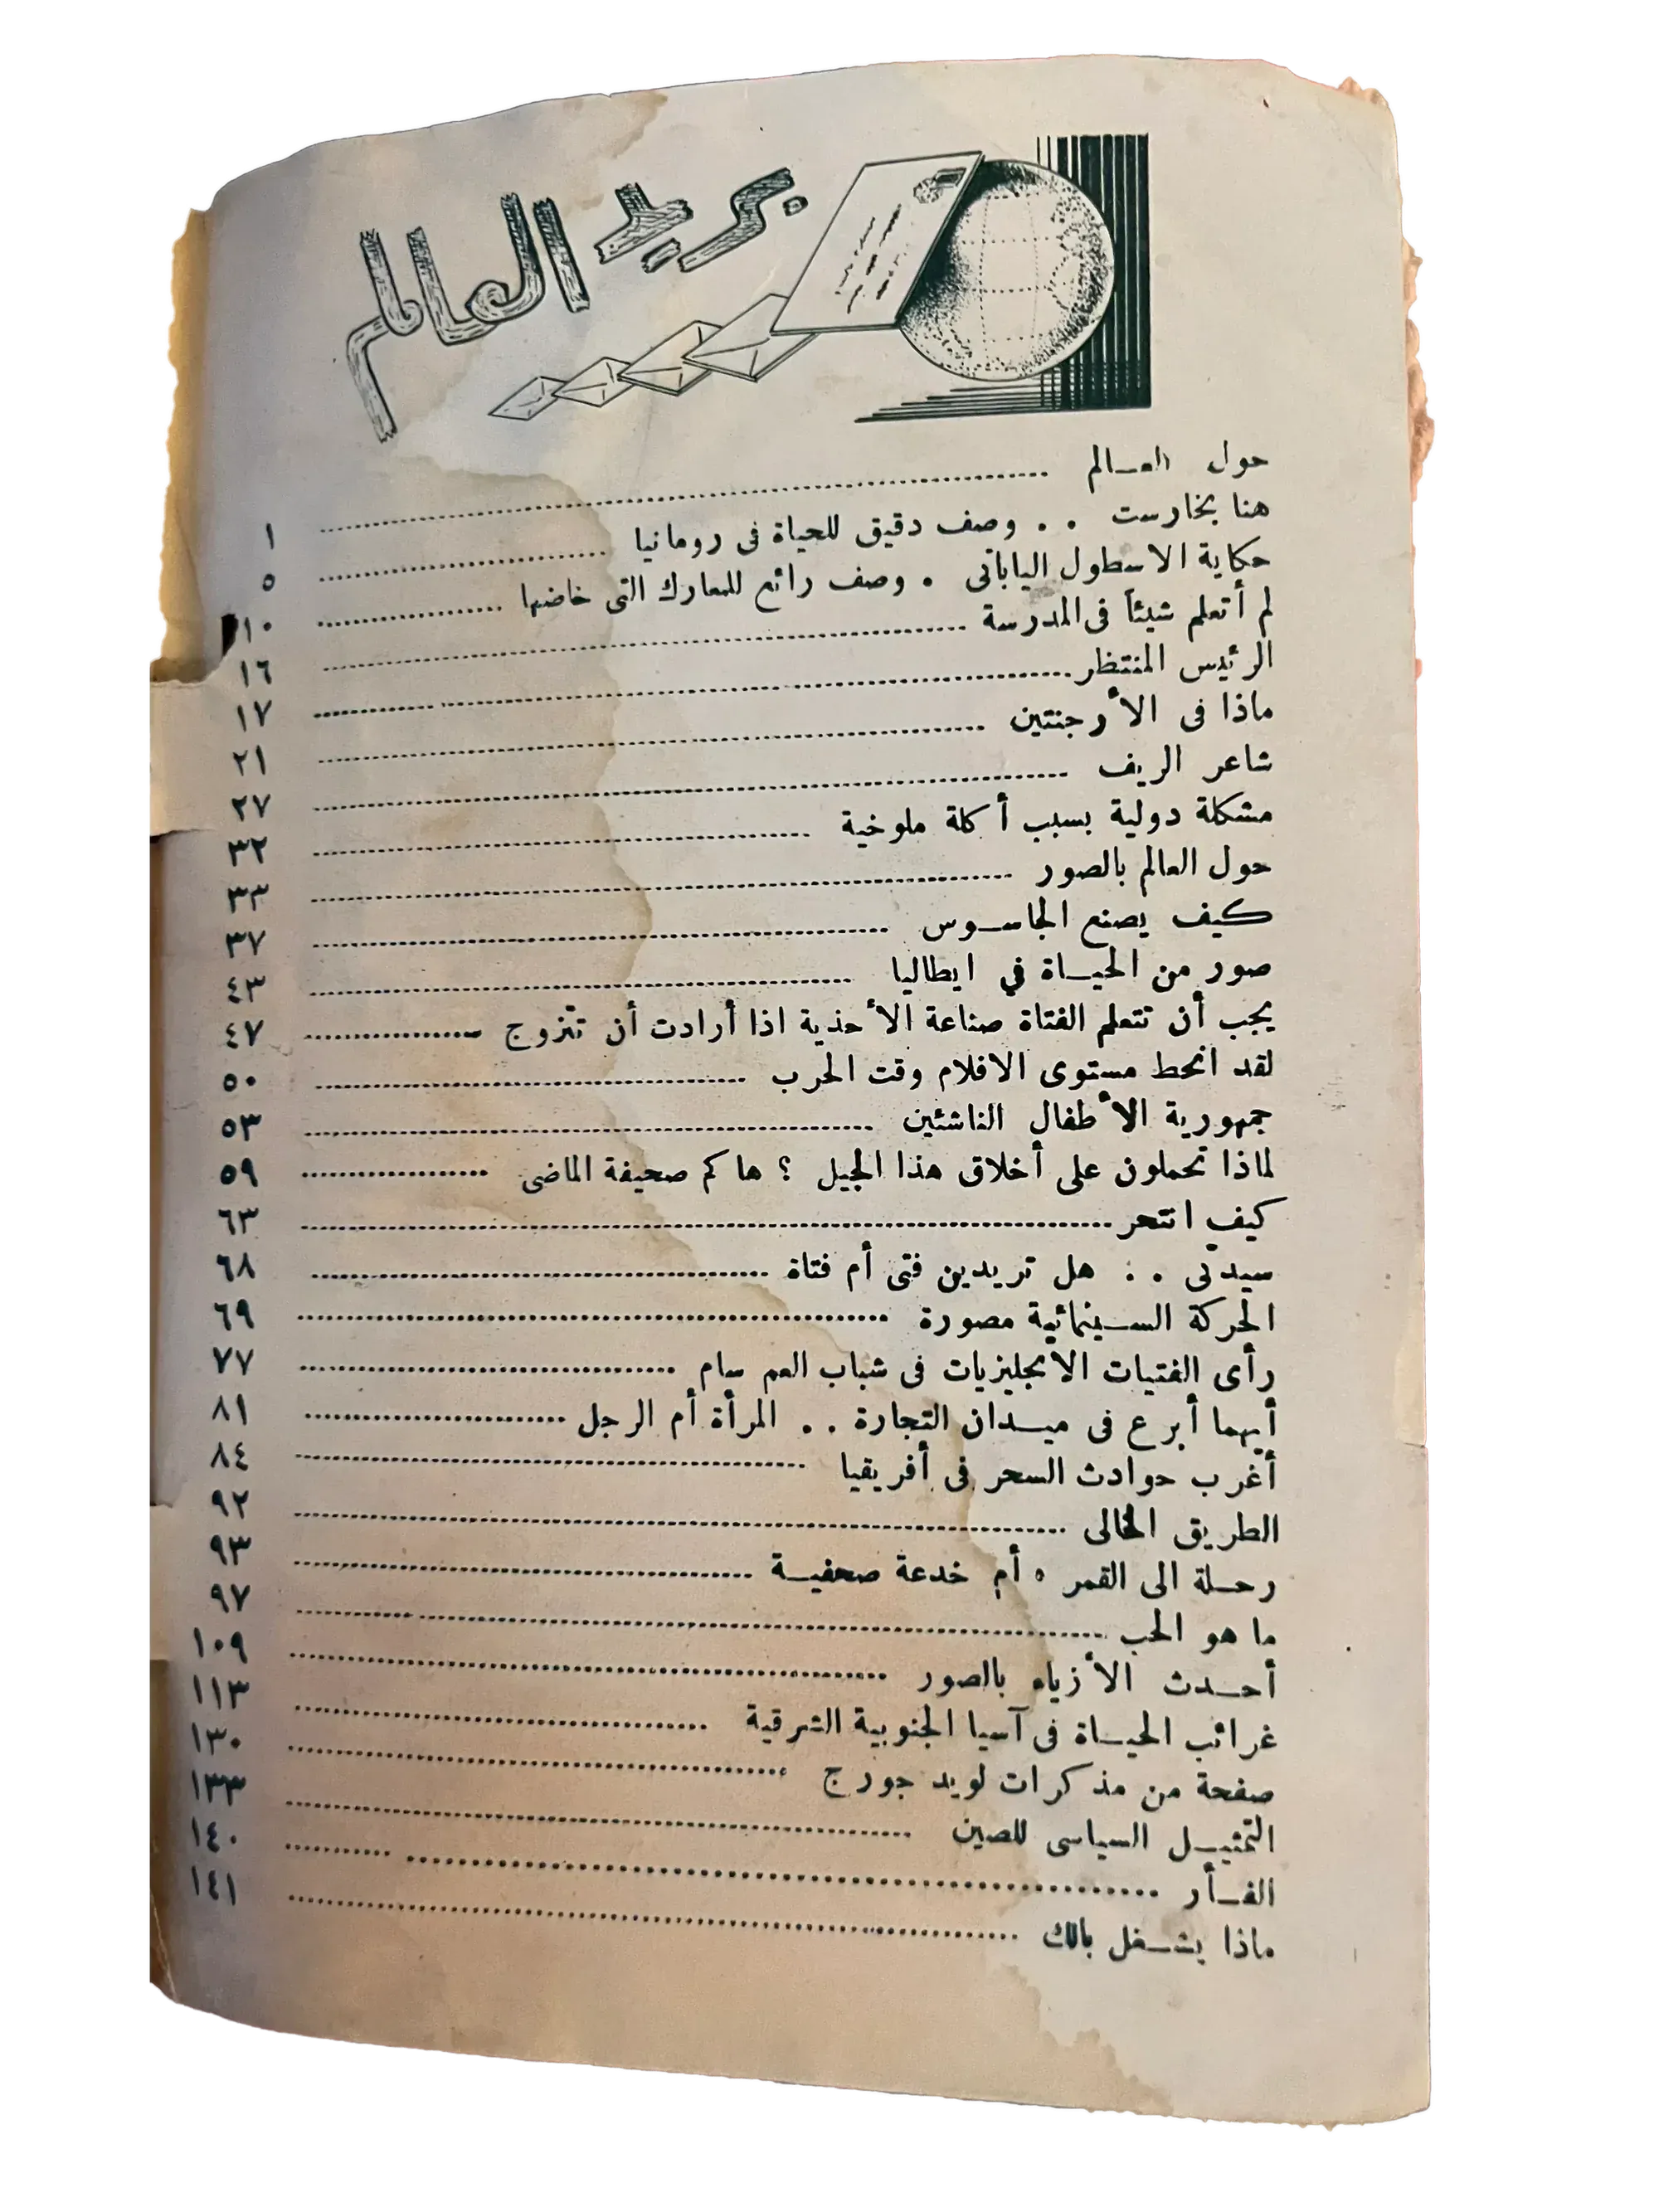 بريد العالم
حول العـالم ١
هنا بخارست . . وصف دقيق للحياة فى رومانيا ٥
حكاية الاسطول اليابانى . وصف رائع للمعارك التى خاضها ١٠
لم أتعلم شيئاً فى المدرسة ١٦
الرئيس المنتظر ١٧
ماذا فى الأرجنتين ٢١
شاعر الريف ٢٧
مشكلة دولية بسبب أكلة ملوخية ٣٢
حول العالم بالصور ٣٣
كيف يصنع الجاسـوس ٣٧
صور من الحيـاة في ايطاليا ٤٣
يجب أن تتعلم الفتاة صناعة الأحذية اذا أرادت أن تتزوج ٤٧
لقد انحط مستوى الافلام وقت الحرب ٥٠
جمهورية الأطفال الناشئين ٥٣
لماذا تحملون على أخلاق هذا الجيل ؟ هاكم صحيفة الماضى ٥٩
كيف انتحر ٦٣
سيدتى . . هل تريدين فتى أم فتاة ٦٨
الحركة السـينمائية مصورة ٦٩
رأى الفتيات الانجليزيات فى شباب العم سام ٧٧
أيهما أبرع فى ميـدان التجارة . . المرأة أم الرجل ٨١
أغرب حوادث السحر فى أفريقيا ٨٤
الطريق الخالى ٩٢
رحـلة الى القمر ، أم خدعة صحفيـة ٩٣
ما هو الحب ٩٧
أحـدث الأزياء بالصور ١٠٩
غرائب الحيـاة فى آسيا الجنوبية الشرقية ١١٣
صفحة من مذكرات لويد جورج ١٣٠
التمثيـل السياسى للصين ١٣٣
الفـأر ١٤٠
ماذا يشـغل بالك ١٤١